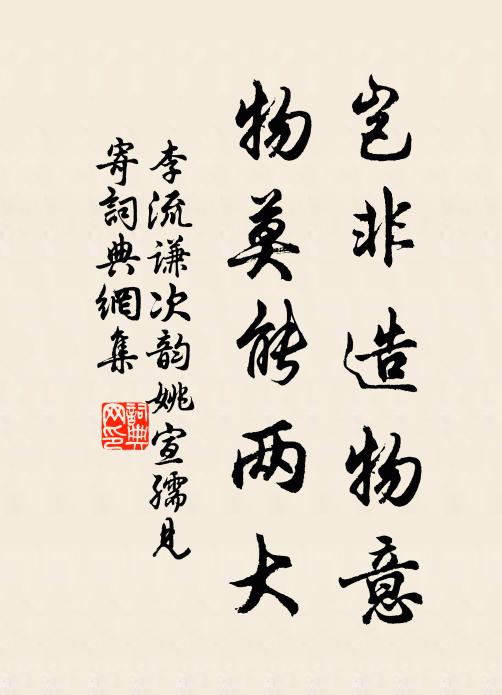 岂非造物意
物莫能两大
李流谦次韵姚宣孺见
寄詞典網集
詞典
网印